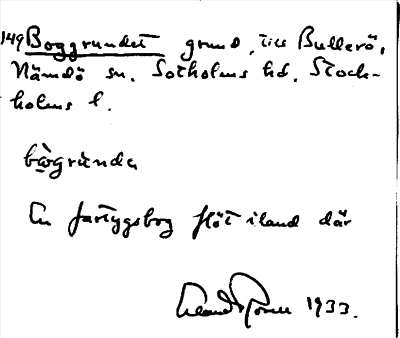 149 Boggrundet grund, till Bullerö,
Nämdö sn. Sotholms hd. Stock-
holms l.
bògrúndə
En fartygsbog flöt iland där
1933.